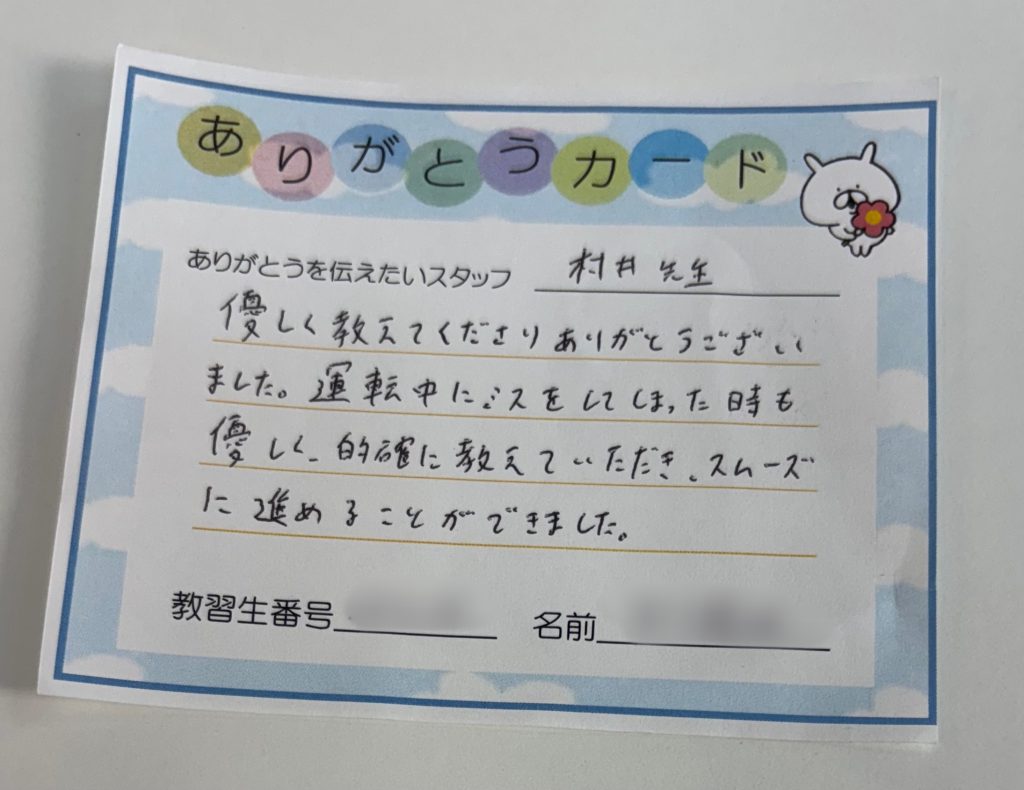 ありがとうカード
ありがとうを伝えたいスタッフ 村井先生
優しく教えてくださりありがとうござい
ました。運転中にミスをしてしまった時も
優しく、的確に教えていただき、スムーズ
に進めることができました。
教習生番号 名前